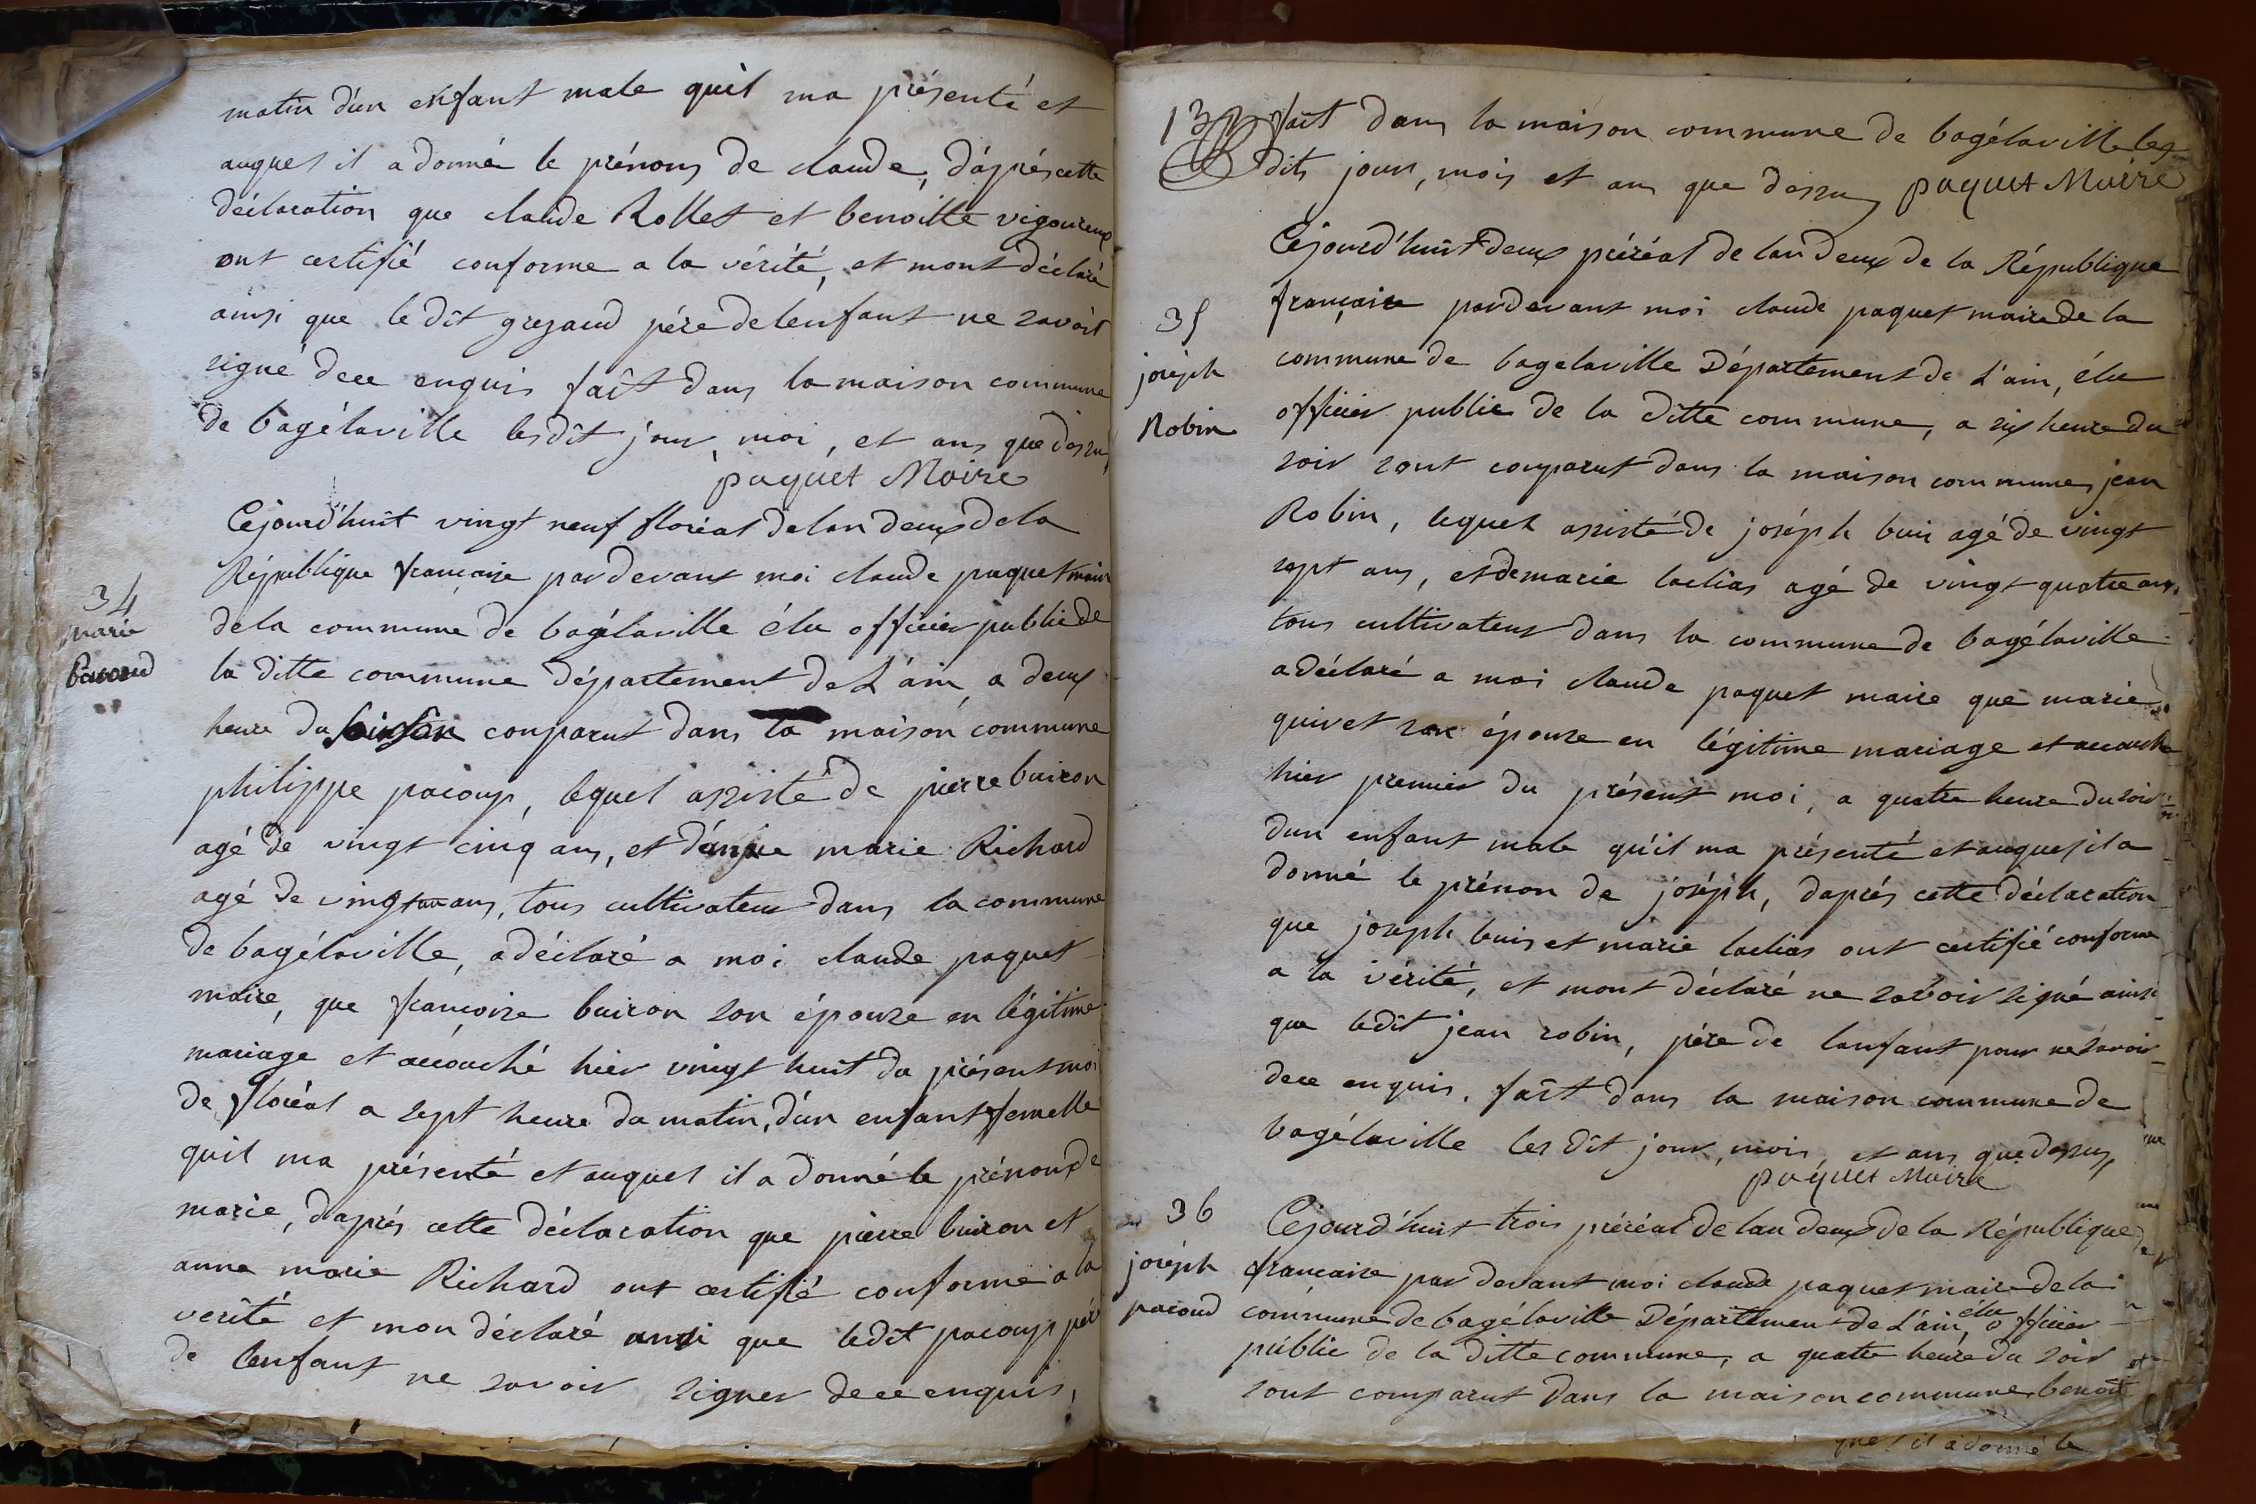 matin d'un enfant male quil ma présenté et
auquel il a donné le prénoms de claude, d'áprés cette
déclaration que claude Rollet et benoitte vigoureux
ont certifié conforme a la vérité, et mont déclaré
ainsi que le dît grezaud pére de lenfant ne savoir
signé dece enquis faît dans la maison commune
de bagélaville lesdît jour, moi, et ans que dessus
paquet Maire
34
marie
pacoud
Cejourd'huit vingt neuf floréal de lan deux de la
République francaise pardevant moi claude paquet maire
dela commune de bagélaville élu officier public de
la ditte commune département de L'ain, a deux
heure du soir conparut dans la maison commune
philippe pacoup, lequel assisté de pierre buiron
agé de vingt cinq ans, et d'anne marie Richard
agé de vingt ans, tous cultivateur dans la commune
de bagélaville, a déclaré a moi claude paquet
maire, que francoise buiron son épouse en légitime
mariage et accouché hier vingt huit du présent moi
de floréal a sept heure du matin, d'un enfant femelle
quil ma présenté et auquel il a donné le prénom de
marie, daprés cette déclaration que pierre buiron et
anne marie Richard ont certifié conforme a la
verité et mon déclaré ainsi que ledît pacoup pére
de lenfant ne savoir signer dece enquis,
132 faît dans la maison commune de bagélaville les
dits jour, mois et ans que dessus paquet Maire
35
joséph
Robin
Cejourd'huit deux préréal de lan deux de la République
française pardevant moi claude paquet maire de la
commune de bagelaville Département de L'ain, élu
officier public de la ditte commune, a six heure du
soir sont conparut dans la maison commune, jean
Robin, lequel assisté de joséph buis agé de vingt
sept ans, et de marie laclias agé de vingt quatre ans,
tous cultivateur dans la commune de bagélaville
a déclaré a moi claude paquet maire que marie
quivet son épouse en légitime mariage et accouché
hier premier du présent moi, a quatre heure du soir
dun enfant male qu'il ma présenté et auquel il a
donné le prénon de joséph, daprés cette déclaration
que joseph buis et marie laclias ont certifié conforme
a la vérité, et mont déclaré ne savoir signé ainsi
que ledît jean robin, pére de lanfant pour ne savoir
dece enquis, faît dans la maison commune de
bagélaville les dît jour, mois et ans que dessus,
paquet Maire
36
joséph
pacoud
Cejourd'huit trois préréal de lan deux de la République
francaise par devant moi claude paquet maire de la
commune de bagélaville Département de L'ain, élu officier
public de la ditte commune, a quatre heure du soir
sont comparut dans la maison commune, benoît
quel il a donné le